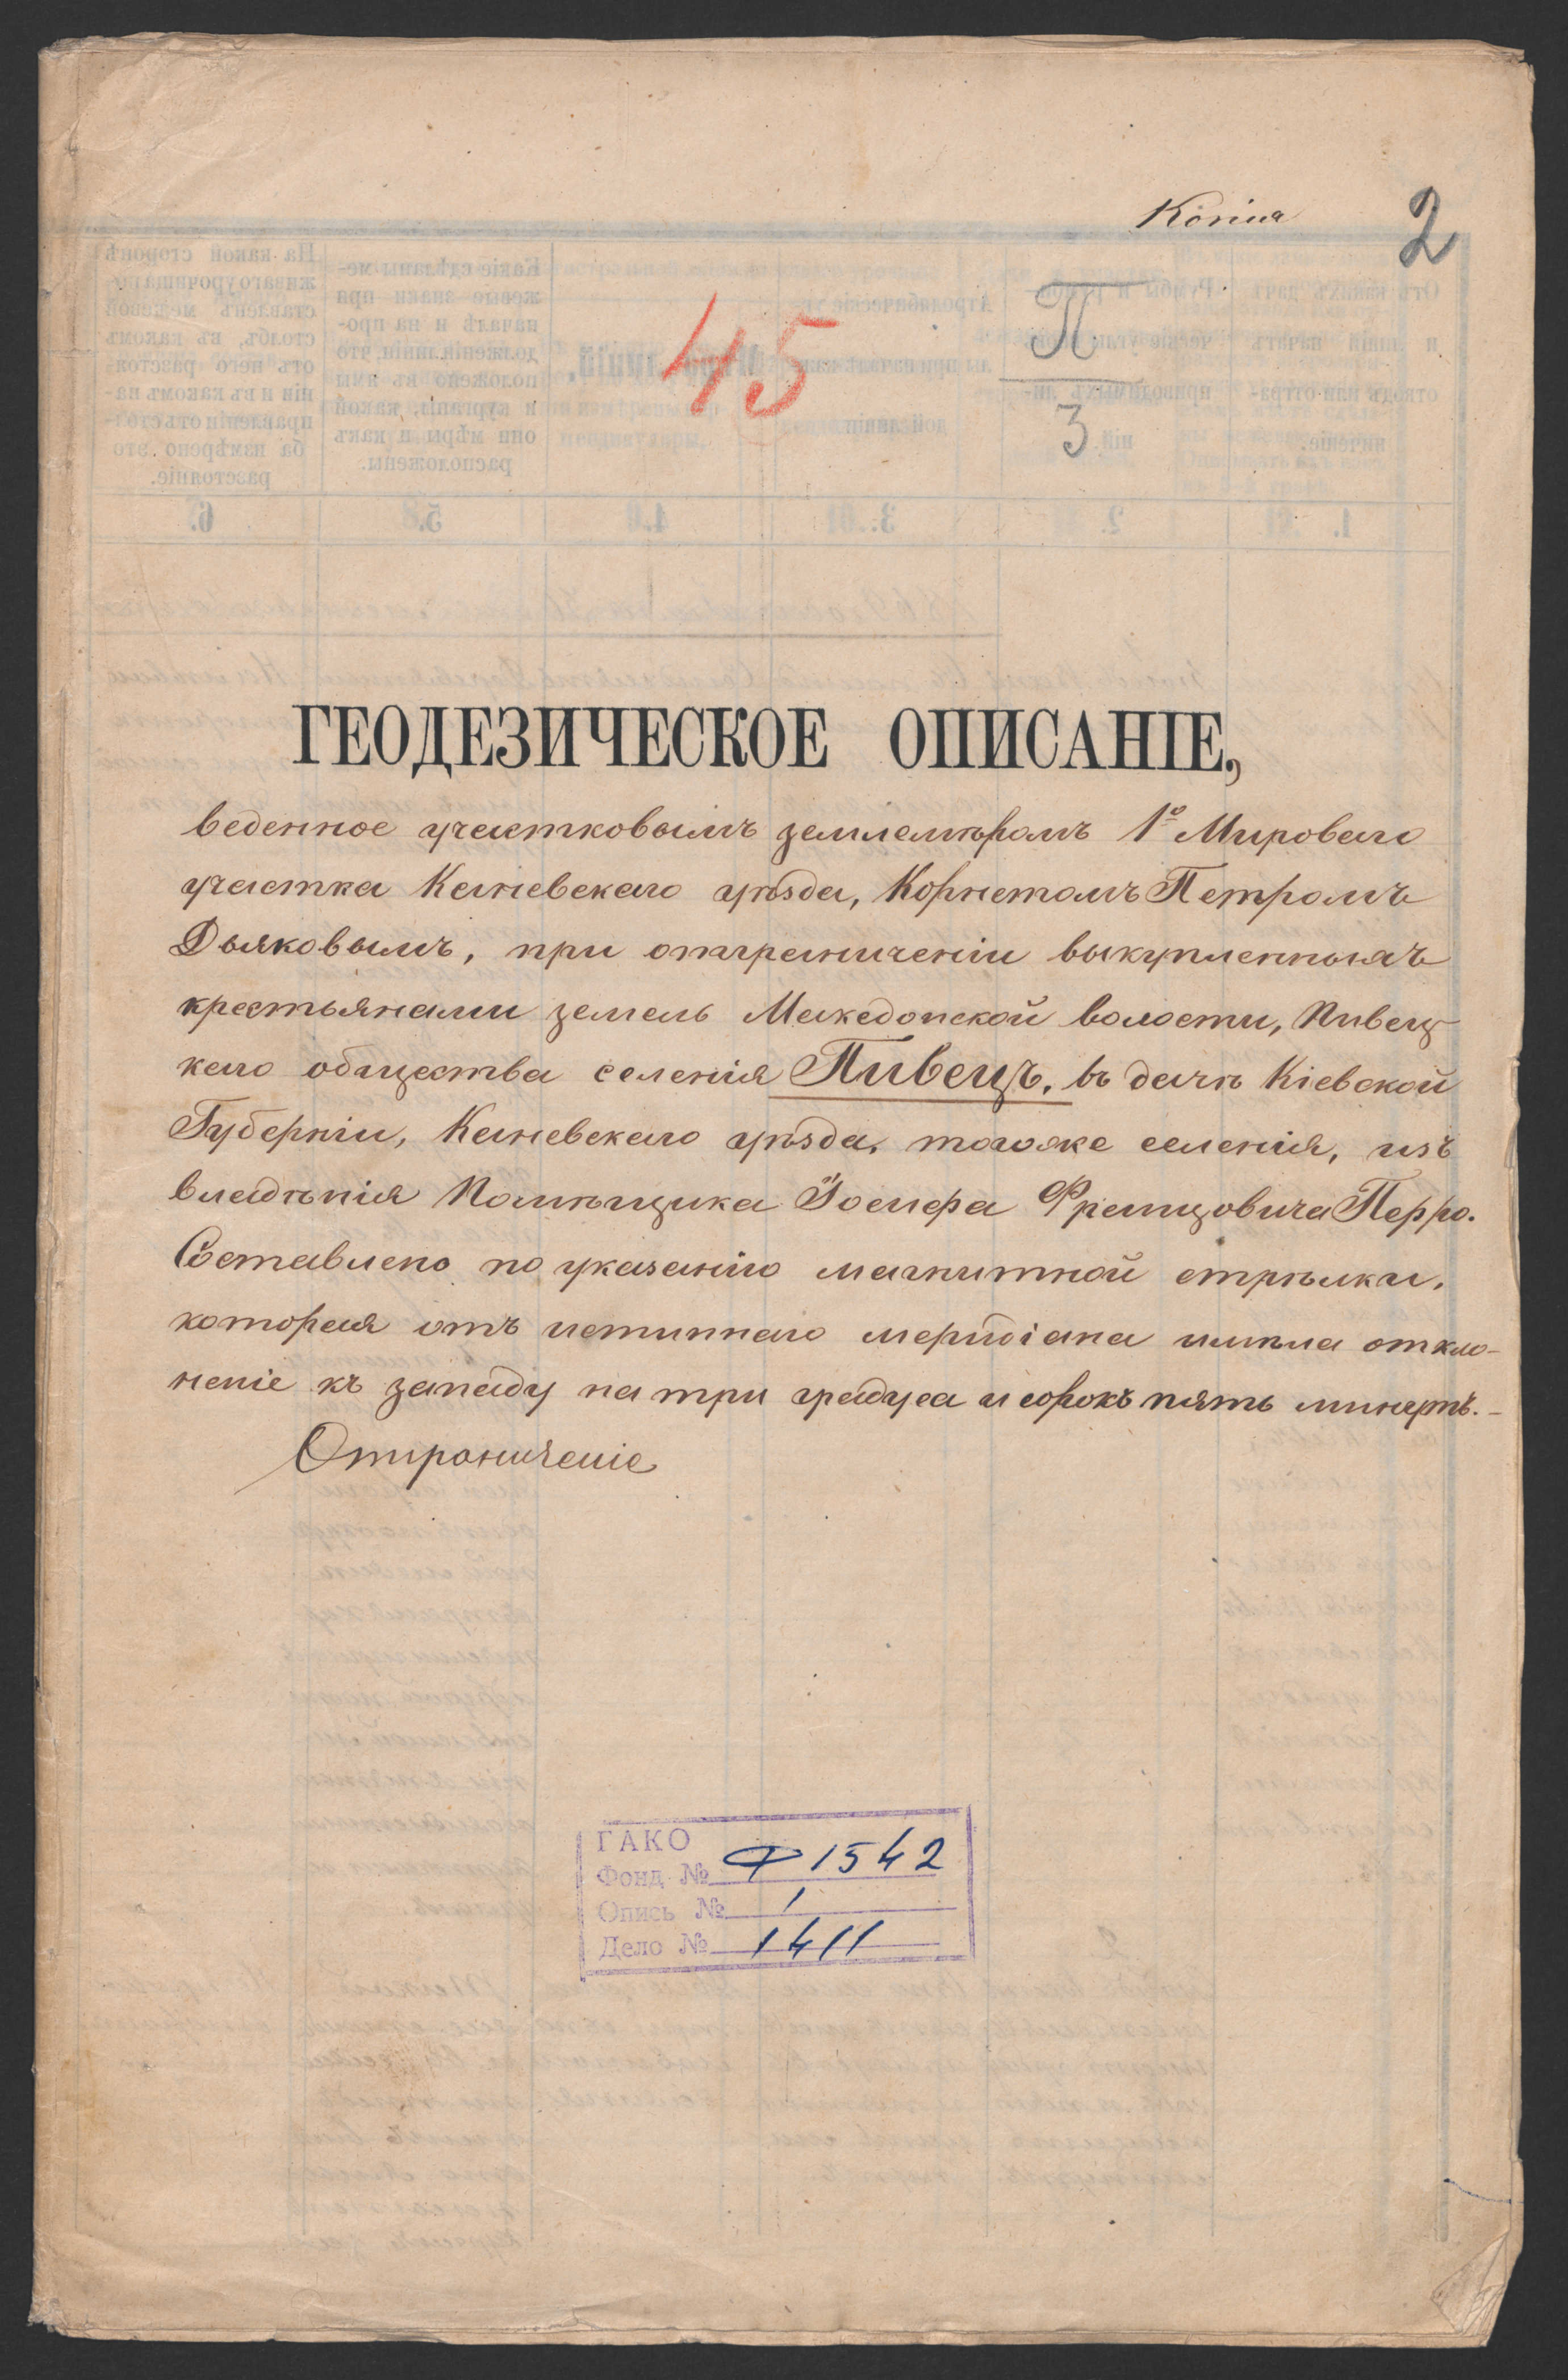 Копія
2
45
П
3
ГЕОДЕЗИЧЕСКОЕ ОПИСАНІЕ,
веденное участковымъ землемѣромъ 1го Мироваго
участка Каневскаго уѣзда, Корнетомъ Петромъ
Дьяковымъ, при отграниченіи выкупленныхъ
крестьянами земель Македонской волости, Пивец
каго общества селенія Пивецъ, въ дачѣ Кіевской
Губерніи, Каневскаго уѣзда, тогоже селенія, изъ
владѣнія Помѣщика Іосифа Францовича Перро.
Составлено по указанію магнитной стрѣлки,
которая отъ истиннаго меридіана имѣла откло-
неніе къ западу на три градуса и сорокъ пять минутъ.-
Отграниченіе
ГАКО
Фонд № Ф 1542
Опись № 1
Дело № 1411